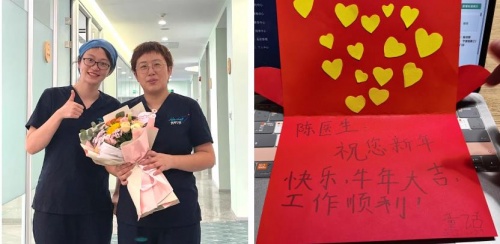 陈医生
祝您新年
快乐，牛年大吉，
工作顺利！